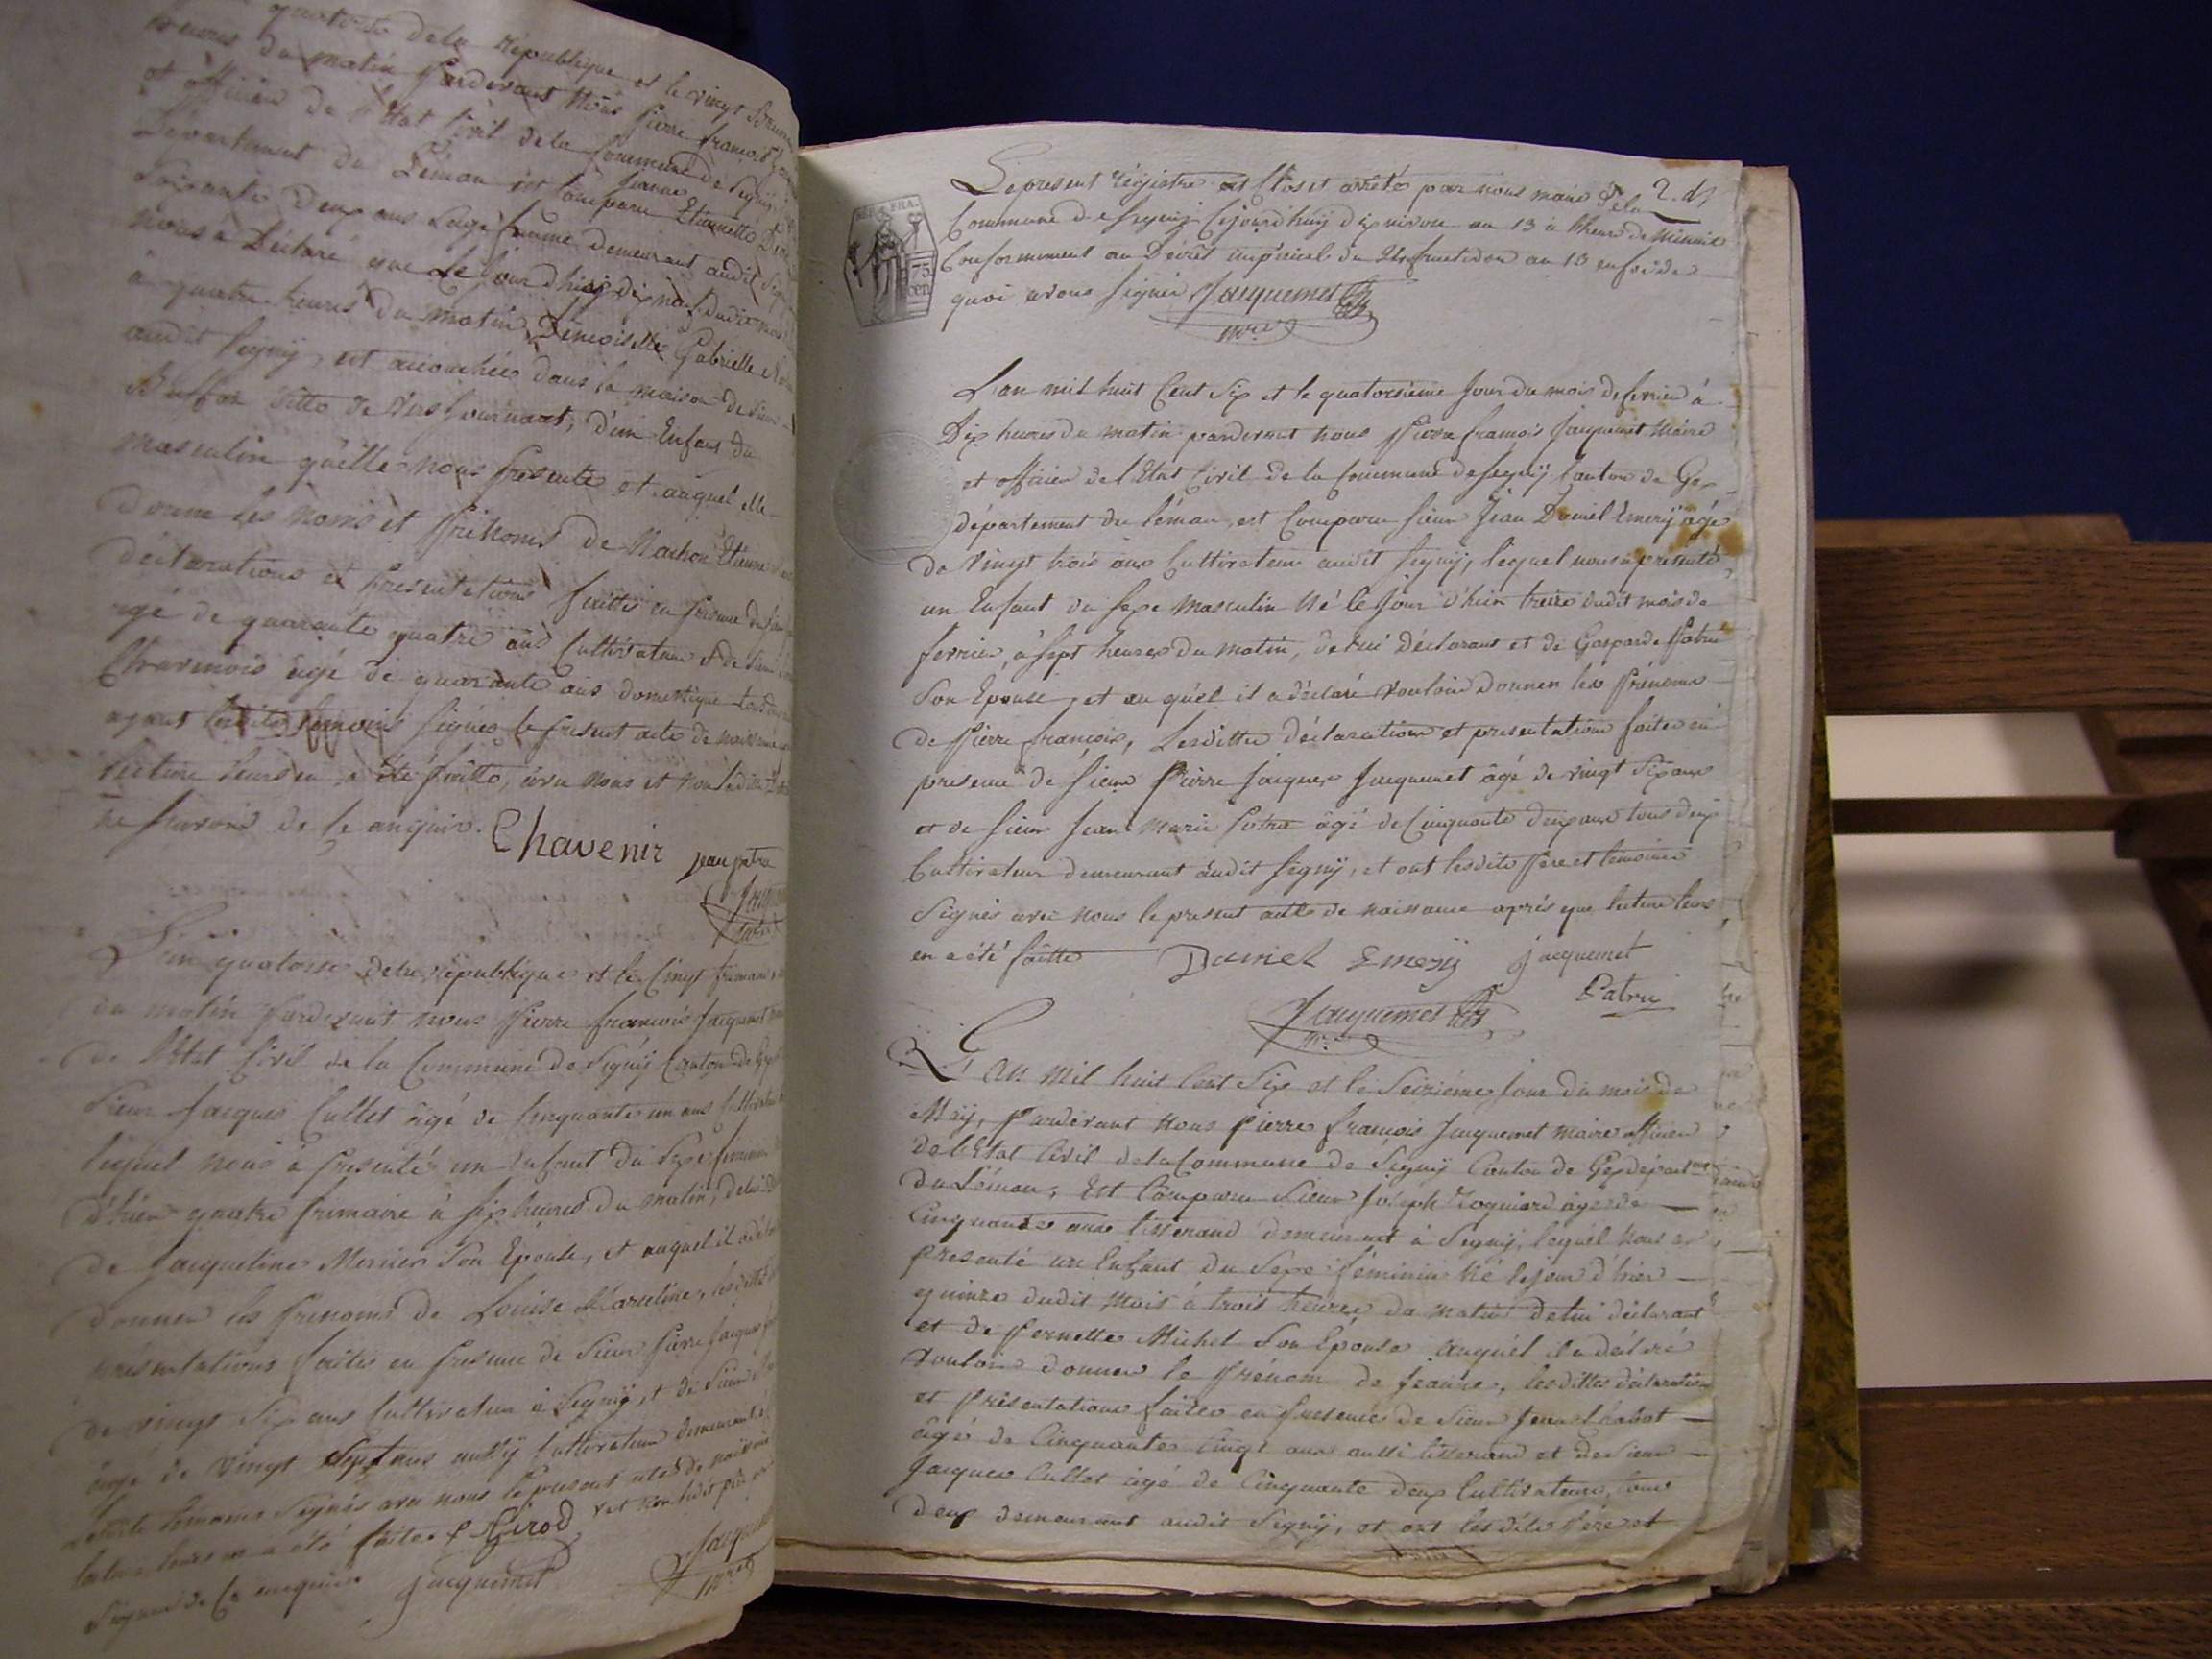 quatorze de la République et le vingt
heures du matin Pardevant Nous Pierre françois
et officier de l'Etat Civil de la Commune de Segny
Département du Léman est Comparue Jeanne Etiennette
Soixante Deux ans Sage femme demeurant audit Segny
Nous a Déclaré que Le Jour d'hier dix neuf Dudit mois
à quatre heures du matin, Demoiselle Gabrielle
audit Segny, est accouchée dans la maison de Sieur
d'un Enfant du
masculin qu'elle nous presente et auquel elle
Donne les Noms et Prénoms de Etienne
déclarations et presentations faittes en presence de
agé de quarante quatre ans Cultivateur et de Sieur
agé de quarante ans domestique tous deux
ayant lesdits témoins signés le present acte de naissance
lecture leurs en a été faitte, avec nous et non ladite
ne savoir de ce enquise. Chavenir jean patra
Jacq
L'an quatorze de la république et le Cinq frimaire
du matin Pardevant nous Pierre françois Jacquemet
de l'Etat Civil de la Commune de Segny Canton de Gex
Sieur Jacques Cullet âgé de Cinquante un ans Cultivateur
lequel nous à presenté un Enfant du Sexe feminin
d'hier quatre frimaire à six heures du matin, de lui
de Jacqueline Mernier Son Epouse, et auquel il a déclaré
donner les prenoms de Louise Marceline, lesdittes
présentations faites en presence de Sieur Pierre Jacques
de vingt Six ans Cultivateur à Segny, et de Sieur
âgé de Vingt Sept ans aussy Cultivateur demeurant
lesdits témoins Signés avec nous le present acte de naissance
lecture leurs en a été faitte P Girod et non ledit père
de ce enquis Jacquemet Jacquem
2. d
Le present régistre est Clos et arreté par nous maire de la
Commune de Segny Cejourd'huy dix nivose an 13 à l'heure de Minuit
Conformement au Décret impérial du fructidor an 13 en foi de
quoi avons Signé Jacquemet
mre
REP. FRA.
75
CEN
L'an mil huit Cent Six et le quatorzième Jour du mois de fevrier à
Dix heures du matin pardevant nous Pierre françois Jacquemet Maire
et officier de l'Etat Civil de la Commune de Segny Canton de Gex
département du Léman, est Comparu Sieur Jean Daniel Emery âgé
de Vingt trois ans Cultivateur audit Segny, lequel nous a presenté
un Enfant du Sexe Masculin Né le Jour d'hier treize dudit mois de
fevrier, à Sept heures du matin, de lui Déclarant et de Gasparde Patrie
Son Epouse, et au quel il a déclaré vouloir donner les Prénoms
de Pierre françois, Lesdittes déclaration et presentation faites en
presence de Sieur Pierre Jacques Jacquemet âgé de vingt Six ans
et de Sieur Jean Marie Patru âgé de Cinquante deux ans tous deux
Cultivateur demeurant audit Segny, et ont lesdits Père et temoins
Signés avec nous le present acte de naissance après que lecture leurs
en a été faitte Daniel Emery Jacquemet
Patru
Jacquemet
mre
L'An mil huit Cent Six et le Seizième Jour du mois de
May, Pardevant Nous Pierre François Jacquemet maire officier
de l'Etat Civil de la Commune de Segny Canton de Gex départ.
du Léman, Est Comparu Sieur Joseph Rogniard âgé de
Cinquante ans tisserand demeurant à Segny, lequel Nous a
presenté un Enfant du Sexe féminin Né le jour d'hier
quinze dudit Mois à trois heures du matin de lui déclarant
et de Pernette Michel Son Epouse auquel il a déclaré
Vouloir donner le Prénom de Jeanne, lesdittes déclaration
et Présentation faites en presence de Sieur Jean Chabot
âgé de Cinquante Cinq ans aussi tisserand et de Sieur
Jacques Cullet âgé de Cinquante Deux Cultivateur, tous
deux demeurant audit Segny, et ont lesdits Père et